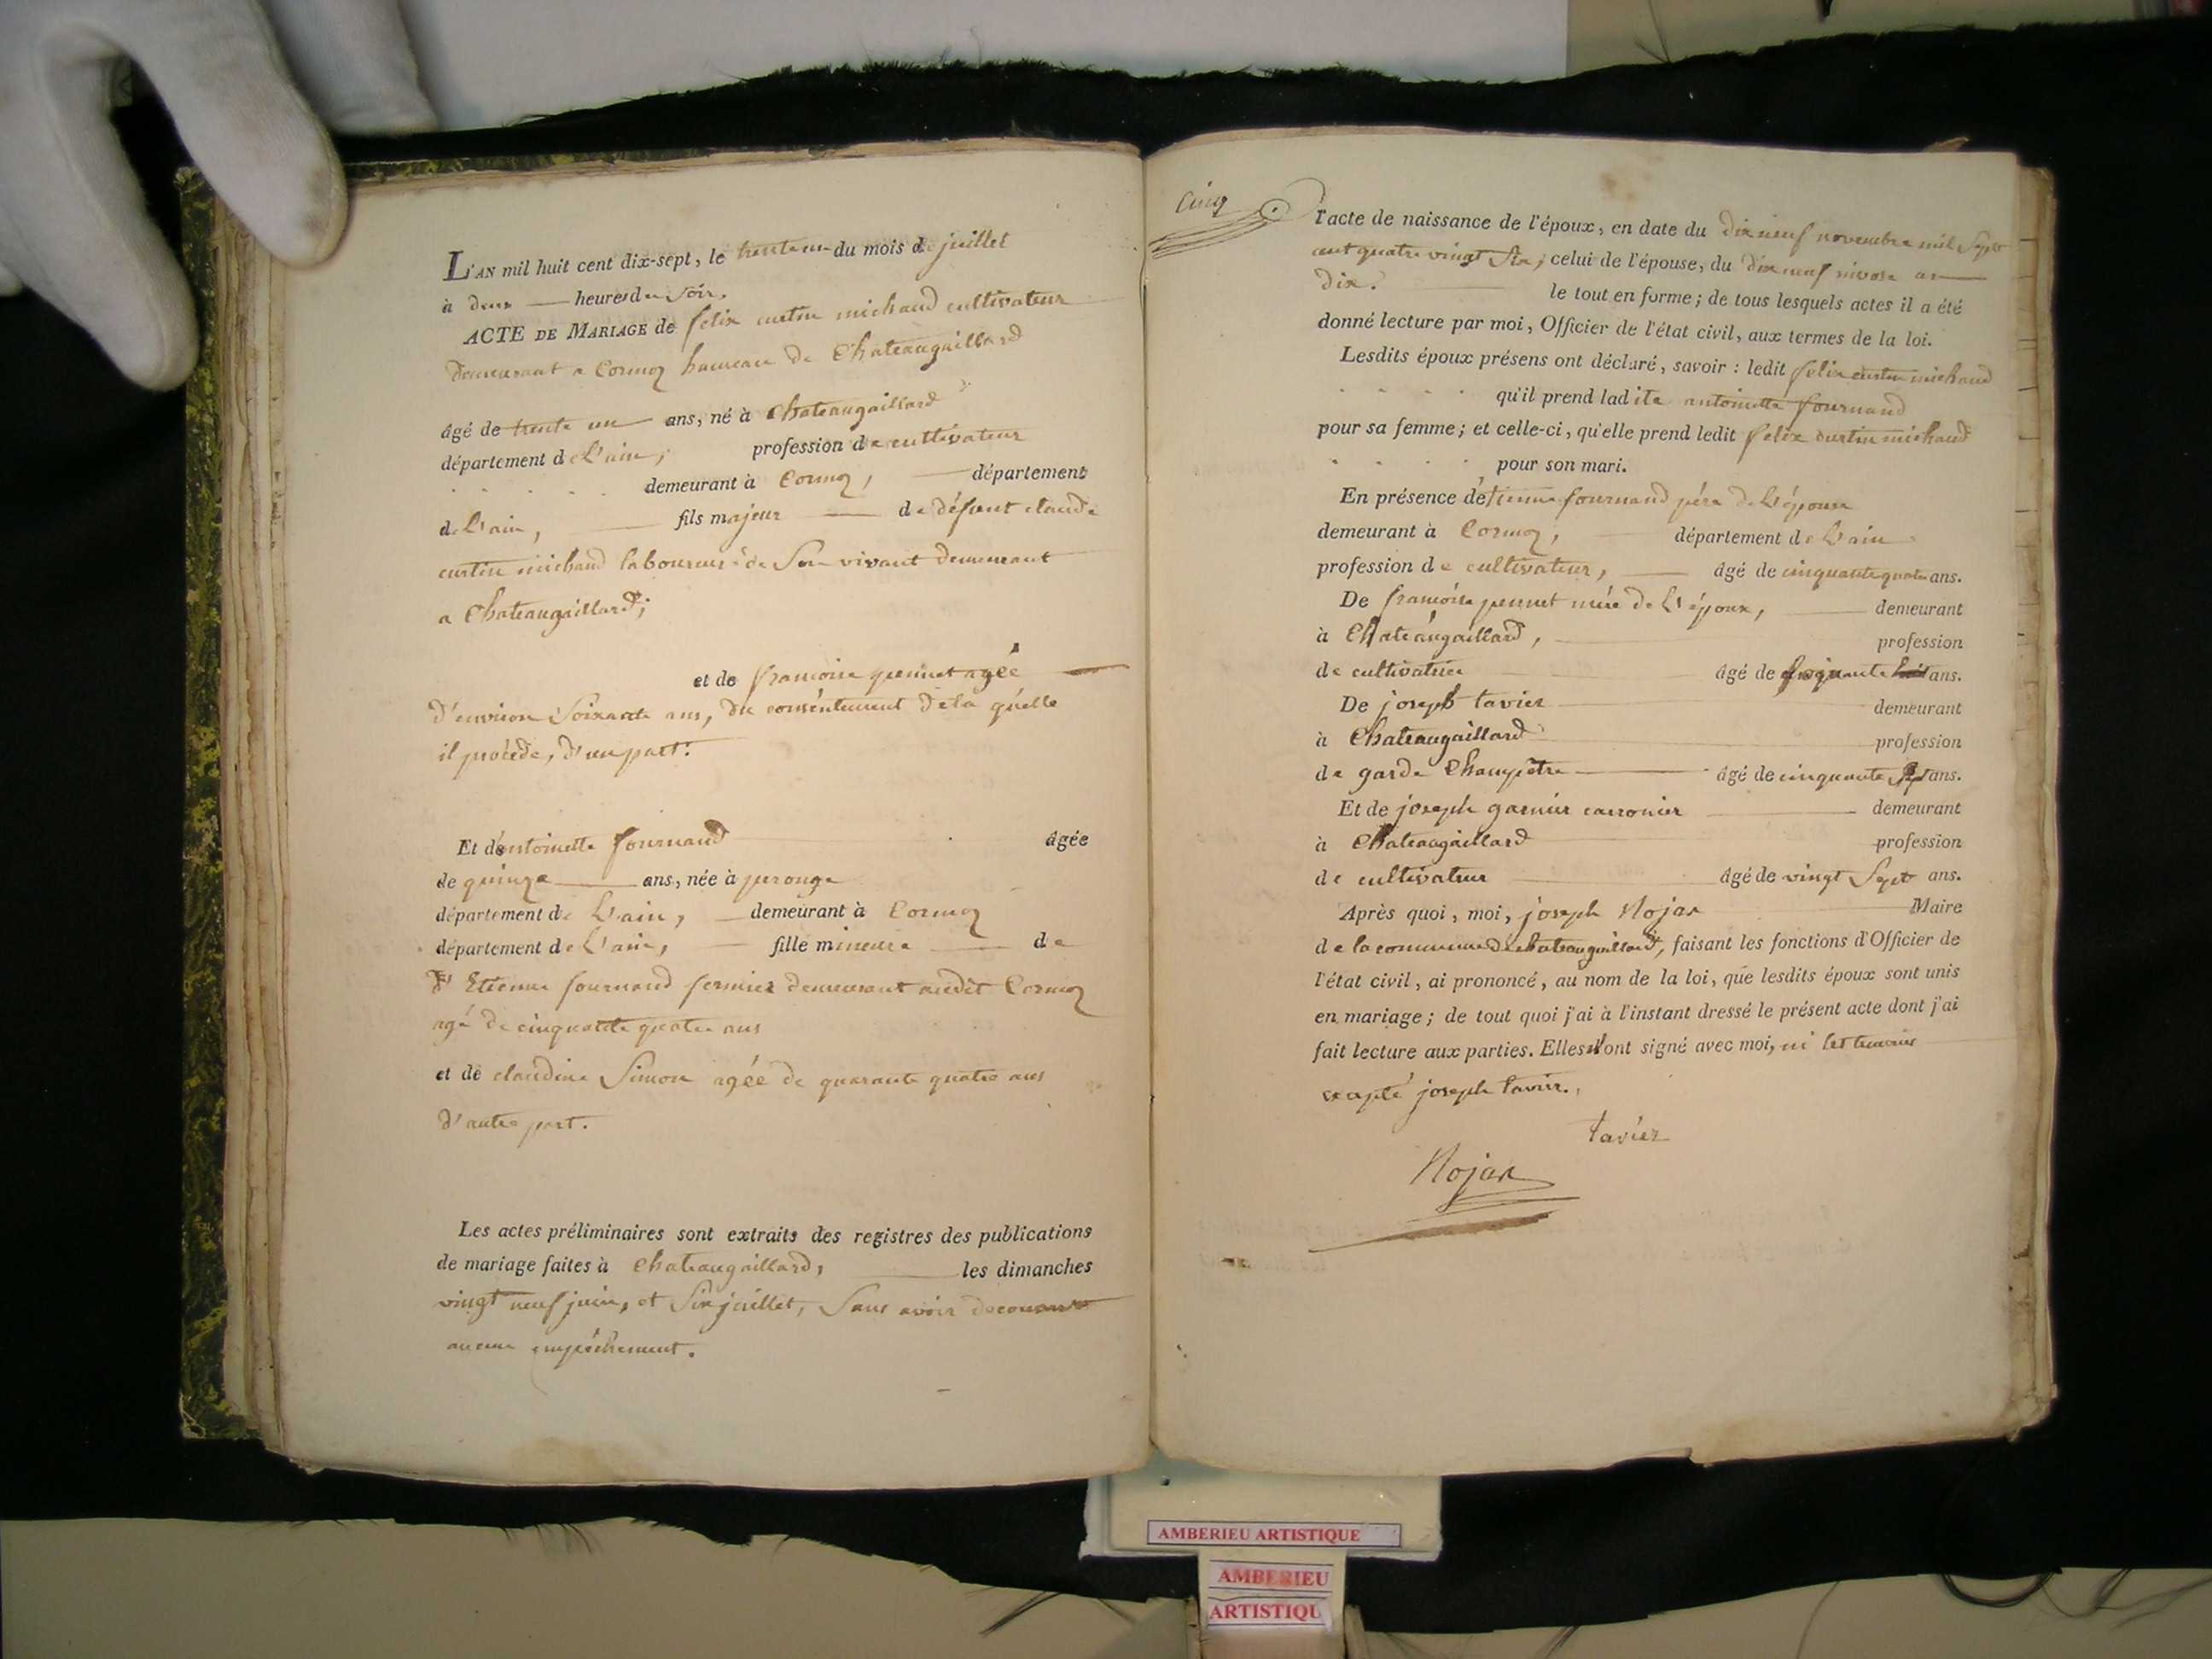 L'AN mil huit cent dix-sept, le trente un du mois de juillet
à deux heures du soir.
ACTE DE MARIAGE de felix curtin michaud cultivateur
demeurant a Cormoz hameau de Chateaugaillard
âgé de trente un ans, né à Chateaugaillard
département de L'ain, profession de cultivateur
demeurant à Cormoz, département
de L'ain, fils majeur de défunt claude
curtin michaud laboureur de Son vivant demeurant
a Chateaugaillard;
et de francoise pennet agée
d'environ Soixante ans, du consentement de la quelle
il procède, d'un part.
Et d'antoinette fournand âgée
de quinze ans, née à perouge
département de L'ain, demeurant à Cormoz
département de L'ain, fille mineure de
d' Etienne fournand fermier demeurant audit Cormoz
agé de cinquante quatre ans
et de claudine Simon agée de quarante quatre ans
d'autre part.
Les actes préliminaires sont extraits des registres des publications
de mariage faites à Chateaugaillard, les dimanches
vingt neuf juin, et Six juillet, Sans avoir decouvert
aucune empêchement.
Cinq
l'acte de naissance de l'époux, en date du dix neuf novembre mil Sept
cent quatre vingt Six; celui de l'épouse, du dix neuf nivose an
dix. le tout en forme; de tous lesquels actes il a été
donné lecture par moi, Officier de l'état civil, aux termes de la loi.
Lesdits époux présens ont déclaré, savoir : ledit felix curtin michaud
qu'il prend ladite antoinette fournand
pour sa femme; et celle-ci, qu'elle prend ledit felix curtin michaud
pour son mari.
En présence d'étienne fournand père de L'épouse
demeurant à Cormoz, département de L'ain
profession de cultivateur, âgé de cinquante quatre ans.
De francoise pennet mére de L'époux, demeurant
à Chateaugaillard, profession
de cultivatrice âgé de soixante ans.
De joseph tavier demeurant
à Chateaugaillard profession
de garde Champêtre âgé de cinquante Sept ans.
Et de joseph garnier carronier demeurant
à Chateaugaillard profession
de cultivateur âgé de vingt Sept ans.
Après quoi, moi, joseph Nojar Maire
de la commune de chateaugaillard, faisant les fonctions d'Officier de
l'état civil, ai prononcé, au nom de la loi, que lesdits époux sont unis
en mariage; de tout quoi j'ai à l'instant dressé le présent acte dont j'ai
fait lecture aux parties. Elles n'ont signé avec moi, ni les temoins
excepté joseph tavier.
tavier
Nojar
AMBERIEU ARTISTIQUE
AMBERIEU
ARTISTIQU